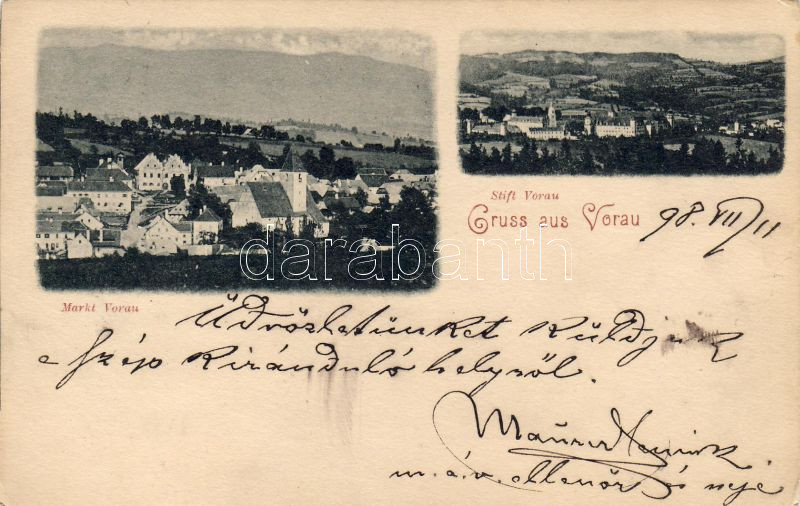 Stift Vorau
Gruss aus Vorau 98. VII/11
darabanth
Markt Vorau
Üdvözletünket Küldjük
e szép kiránduló helyről.
Maurer Henrik
m. á. v. ellenőr és neje